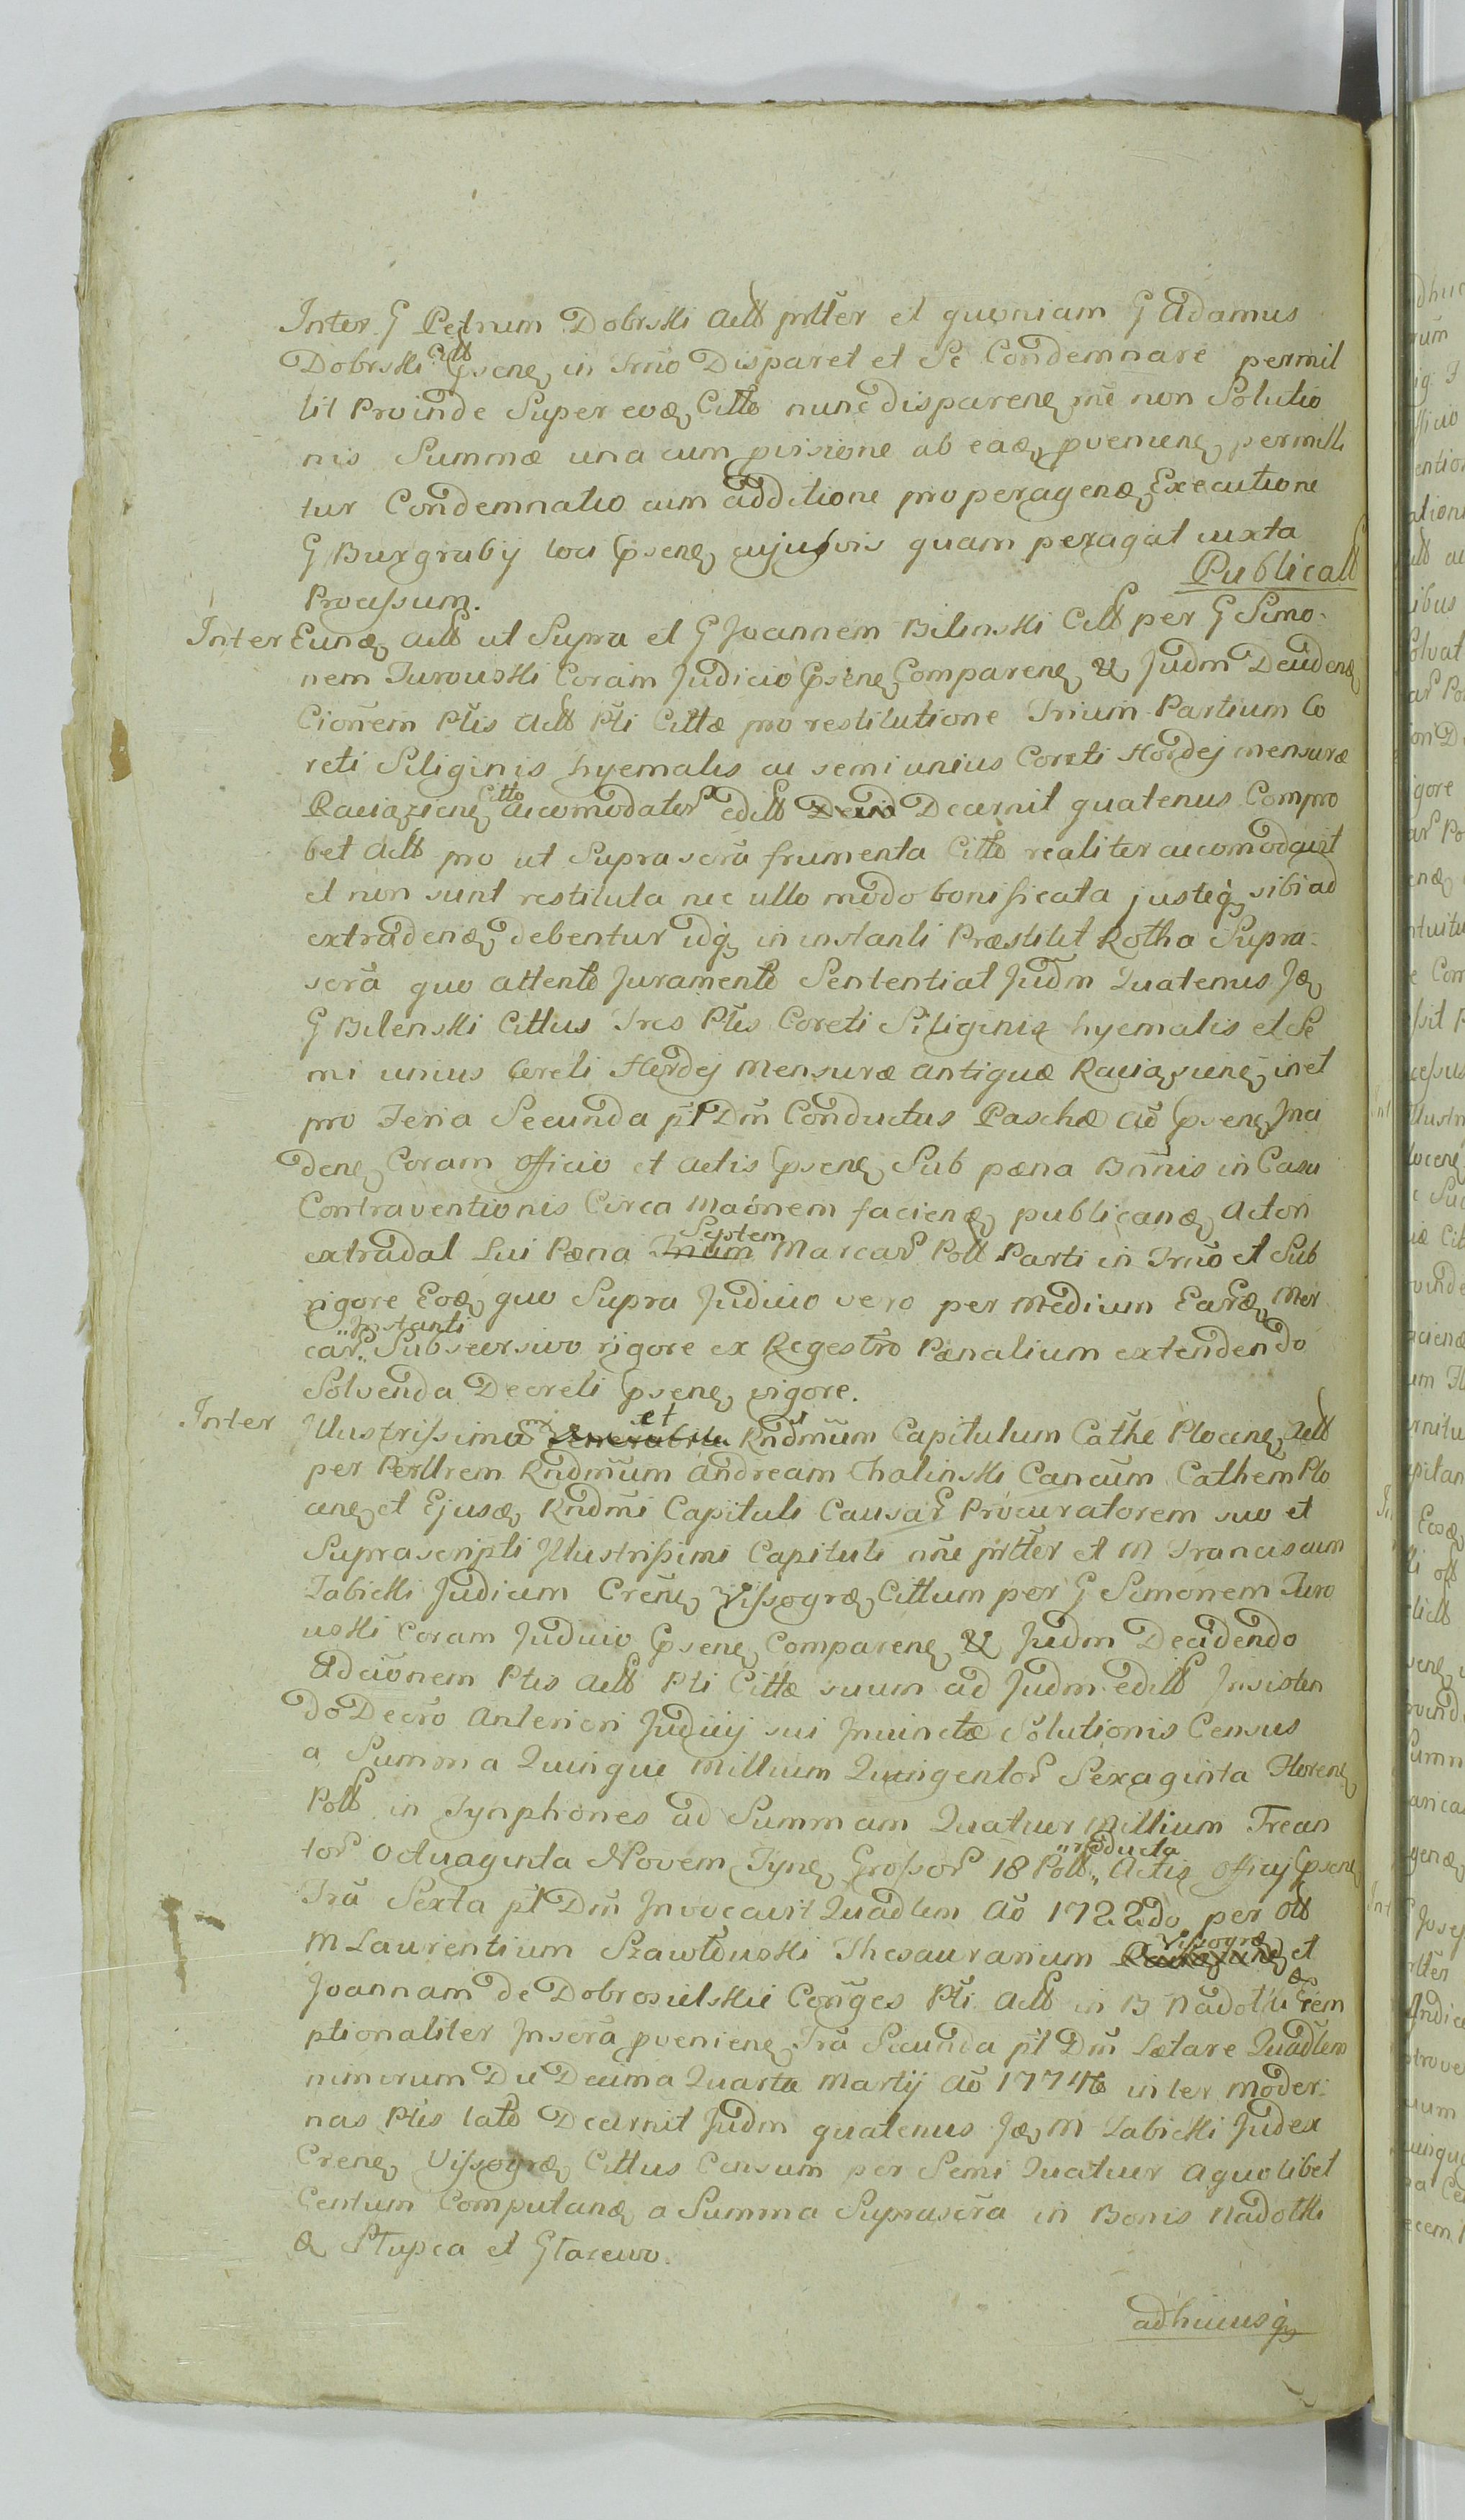 Inter G Petrum Dobrski Actt prtter et quoniam G Adamus
Dobrski Citt Gsenę in Trno Disparet et Se Condemnare permit
tit Proinde Super eoæ Citto nunc disparenę rñe non Solutio
nis Summæ una cum pvisione ab eaæ pvenienę permitti
tur Condemnatio cum additione pro peragenæ Executione
G Burgrabij loci Gsenę cujusvis quam peragat iuxta
Publicatt
Processum.
Inter Eunæ Actt ut Supra et G Joannem Bilinski Citt per G Simo-
nem Turouski Coram Judicio Gsenę Comparenę & Judm Decidenæ
Cionem Ptis Actt Pti Cittæ pro restitutione Trium Partium Co
reti Siliginis hyemalis ac semi unius Coreti Hordej mensuræ
Raciązienę Citto accomodator editt Decernit quatenus Compro
bet Actt pro ut Suprascra frumenta Citto realiter accomodavit
et non sunt restituta nec ullo modo bonificata justeq sibi ad
extradenæ debentur idq in instanti Præstitit Rotha Supra-
scra quo attento Juramento Sententiat Judm Quatenus Jæ
G Bilenski Cittus Tres Ptes Coreti Siliginis hyemalis et Se
mi unius Coreti Hordej mensuræ antiquæ Raciązienę in et
pro Feria Secunda pt Dm Conductus Paschæ ad Gsenę Inci
denę Coram Officio et Actis Gsenę Sub pæna Bnnis in Casu
Contraventionis Circa maonem facienæ publicanæ Actori
extradat Lui Pæna Trium Septem Marcar Poll Parti in Trno et Sub
rigore Eoæ quo Supra Judicio vero per medium Earæ Mar
car „Instanti Subseersivo rigore ex Regestro Pænalium extendendo
Solvenda Decreti Gsenę vigore.
Inter Illustrissimum Venerabile et Rndmum Capitulum Cathe Plocenę Actt
per Perllrem Rndmum Andream Chalinski Cancum Cathem Plo
cenę et Ejusæ Rndmi Capituli Causar Procuratorem suo et
Suprascripti Illustrissimi Capituli nñe prtter et M Franciscum
Zabicki Judicem Crenę Vissogræ Cittum per G Simonem Turo
uski Coram Judicio Gsenę Comparenę & Judm Decidendo
Adcionem Ptis Actt Pti Cittæ suum ad Judm editt Insisten
do Decro Anteriori Judicij sui Iniunctæ Solutionis Census
a Summa Quinque Millium Quingentor Sexaginta Florenę
Poll in Tynphones ad Summam Quatuor Millium Trecen
tor Octuaginta Novem Tynę Grossor 18 Poll „reducta Actis Officij Gsenę
Fra Sexta pt Dm Invocavit Quadlem Ao 1722do per ott
M Laurentium Szawłouski Thesaurarium Raciązienę Vissogræ et
Joannam de Dobrosielskie Conges Pti Actt in B Nadolki & rem
ptionaliter Inscra pvenienę Fra Secunda pt Dm Lætare Quadlem
nimirum Die Decima Quarta Martij Ao 1774to inter moder-
nas Ptes lato Decernit Judm quatenus Jæ M Zabicki Judex
Crenę Vissogræ Cittus Censum per Semi Quatuor a quolibet
Centum Computanæ a Summa Suprascra in Bonis Nadolki
& Stupca et Gtarewo.
adhucusq